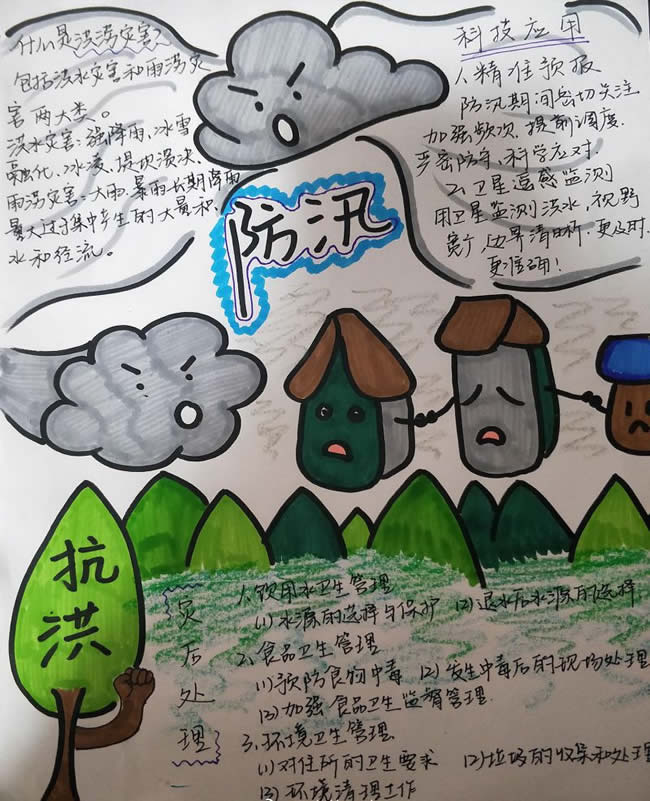 什么是洪涝灾害?
包括洪水灾害和雨涝灾
害两大类。
洪水灾害:强降雨、冰雪
融化、冰凌、堤坝溃决、
雨涝灾害:大雨、暴雨长期降雨
量大过于集中产生的大量积
水和径流。
科技应用
1、精准预报
防汛期间密切关注
加强频次,提前调度.
严密防守,科学应对.
2、卫星遥感监测
用卫星监测洪水,视野
宽广边界清晰.更及时.
更准确!
防汛
抗
洪
灾后处理
1.饮用水卫生管理
(1)水源的选择与保护 (2)退水后水源的选择
2.食品卫生管理
(1)预防食物中毒 (2)发生中毒后的现场处理
(3)加强食品卫生监督管理.
3.环境卫生管理
(1)对住所的卫生要求 (2)垃圾的收集和处理
(3)环境清理工作